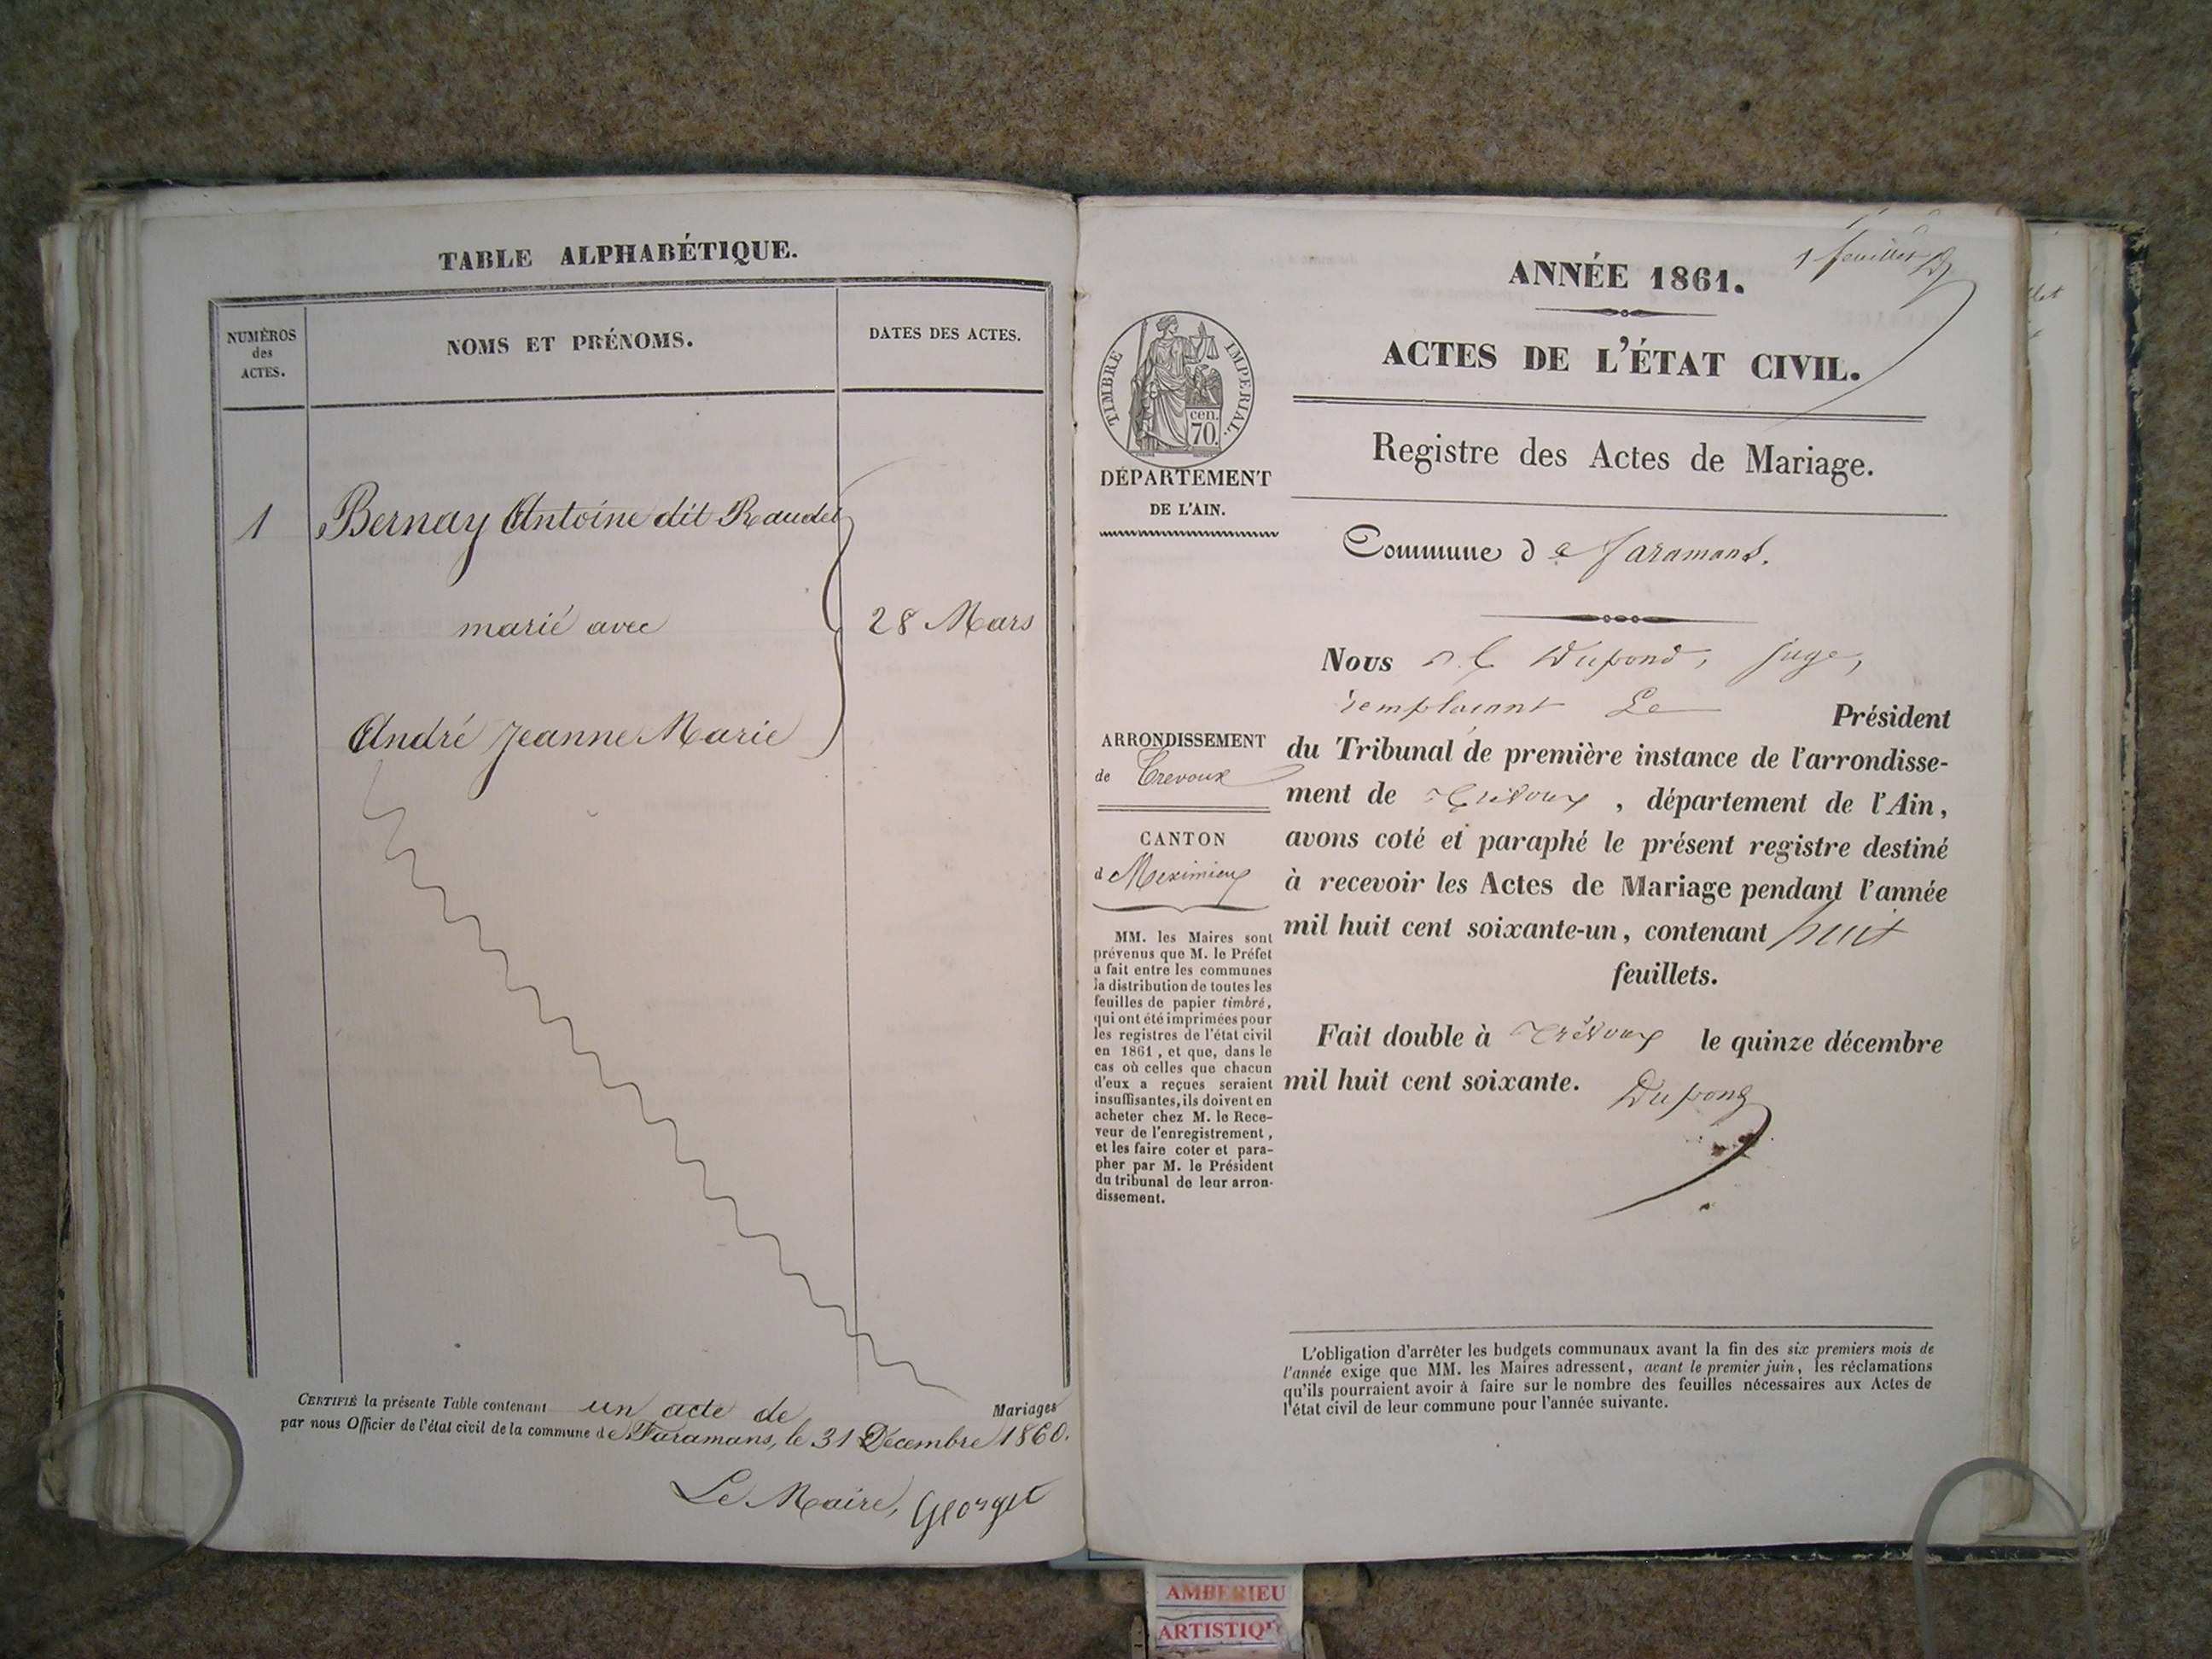 TABLE ALPHABÉTIQUE.
NUMÉROS
des
ACTES.
NOMS ET PRÉNOMS.
DATES DES ACTES.
1 Bernay Antoine dit Raudet
marié avec
28 Mars
André Jeanne Marie
CERTIFIÉ la présente Table contenant un acte de Mariages
par nous Officier de l'état civil de la commune de Faramans, le 31 Décembre 1860.
Le Maire, Georget
1 feuillet
ANNÉE 1861.
ACTES DE L'ÉTAT CIVIL.
TIMBRE IMPÉRIAL.
cen.
70.
DÉPARTEMENT
DE L'AIN.
Registre des Actes de Mariage.
Commune de Faramans.
ARRONDISSEMENT
de Trevoux
CANTON
de Meximieux
MM. les Maires sont
prévenus que M. le Préfet
a fait entre les communes
la distribution de toutes les
feuilles de papier timbré,
qui ont été imprimées pour
les registres de l'état civil
en 1861, et que, dans le
cas où celles que chacun
d'eux a reçues seraient
insuffisantes, ils doivent en
acheter chez M. le Rece-
veur de l'enregistrement,
et les faire coter et para-
pher par M. le Président
du tribunal de leur arron-
dissement.
Nous Dupond, Juge,
remplacant Le Président
du Tribunal de première instance de l'arrondisse-
ment de Trévoux, département de l'Ain,
avons coté et paraphé le présent registre destiné
à recevoir les Actes de Mariage pendant l'année
mil huit cent soixante-un, contenant huit
feuillets.
Fait double à Trévoux le quinze décembre
mil huit cent soixante.
Dupond
L'obligation d'arrêter les budgets communaux avant la fin des six premiers mois de
l'année exige que MM. les Maires adressent, avant le premier juin, les réclamations
qu'ils pourraient avoir à faire sur le nombre des feuilles nécessaires aux Actes de
l'état civil de leur commune pour l'année suivante.
AMBERIEU
ARTISTIQU